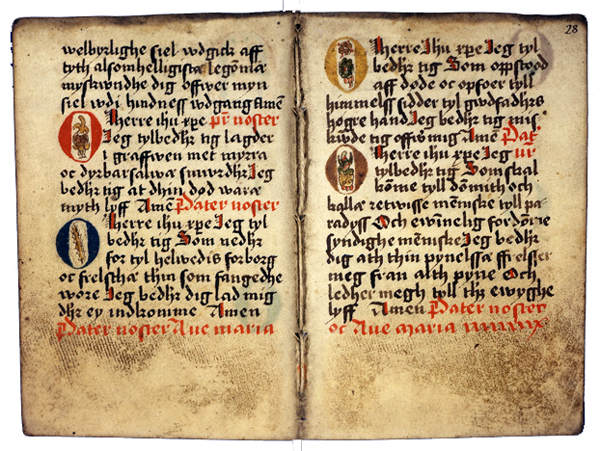 welbyrlighe siel wdgick aff
tyth alsomhelligista legoma
myskwndhe dig offwer myn
siel wdi hindness wdgang amen
O herre ihu xpe pr noster
Jeg tylbedhr tig lagder
i graffwen met myrra
oc dyrbarsalwa smwrdhr Jeg
bedhr tig at dhin død wara
myth lyff Amen Pater noster
O herre ihu xpe Jeg tyl
bedhr tig Som nedhr
for tyl helwedis forborg
oc frelstha thin som fangedhe
wore Jeg bedhr dig lad mig
dhr ey indkomme Amen
Pater noster Aue maria
28
O herre Ihu xpe Jeg tyl
bedhr tig Som oppstood
aff døde oc opfoer tyll
himmelss sidder tyl gwdfadhrs
høgre hand Jeg bedhr tig mis
kwde tig offwer mig Amen Pat
O herre ihu xpe Jeg nr
tylbedhr tig Som skal
kōme tyll dōmith och
kallæ retwisse mēniske tyll pa-
radyss Och ewinelig fordōrie
syndighe mēniske Jeg bedhr
dig ath thin pynelssæ ffrelsser
meg fran alth pyne Och
ledher megh tyll thz ewyghe
lyff Amen Pater noster
oc Aue maria